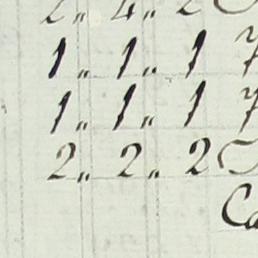 2 „ 4 „ 2
1 „ 1 „ 1 7
1 „ 1 „ 1 7
2 „ 2 „ 2
Ca